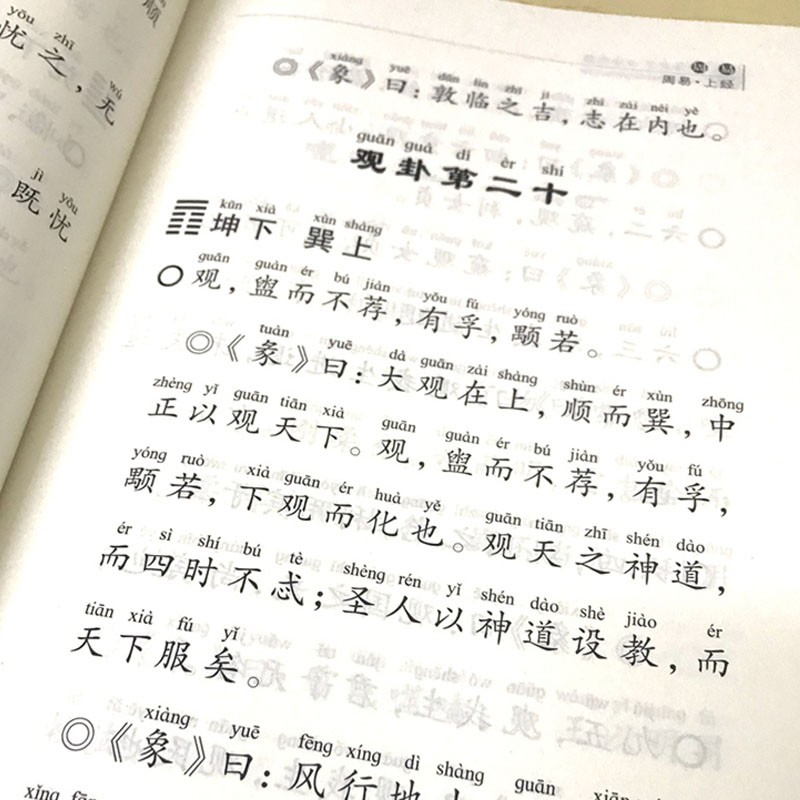 顺
yōu zhī
忧之，
wú
无
jì yōu
既忧
周易·上经
xiàng yuē dūn lín zhī jí zhì zài nèi yě
《象》曰：敦临之吉，志在内也。
guān guà dì èr shí
观卦第二十
kūn xià xùn shàng
坤下 巽上
guān guàn ér bú jiàn yǒu fú yóng ruò
观，盥而不荐，有孚，颙若。
tuàn yuē dà guān zài shàng shùn ér xùn zhōng
《彖》曰：大观在上，顺而巽，中
zhèng yǐ guān tiān xià guān guàn ér bú jiàn yǒu fú
正以观天下。观，盥而不荐，有孚，
yóng ruò xià guān ér huà yě guān tiān zhī shén dào
颙若，下观而化也。观天之神道，
ér sì shí bú tè shèng rén yǐ shén dào shè jiào ér
而四时不忒；圣人以神道设教，而
tiān xià fú yǐ
天下服矣。
xiàng yuē fēng xíng dì shàng guān xiān
《象》曰：风行地上
xǐng fāng